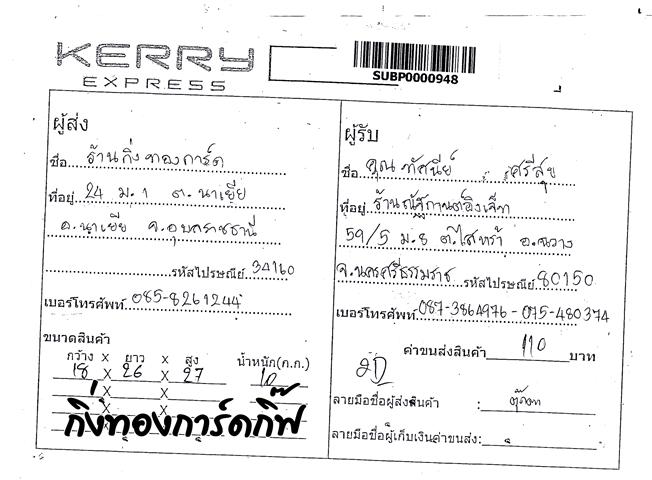 KERRY
EXPRESS
SUBP0000948
ผู้ส่ง
ชื่อ ร้านกิ่งทองการ์ด
ที่อยู่ 24 ม.1 ต.นาเยีย
อ.นาเยีย จ.อุบลราชธานี
รหัสไปรษณีย์ 34160
เบอร์โทรศัพท์ 085-8261244
ขนาดสินค้า
กว้าง x ยาว x สูง น้ำหนัก(ก.ก.)
18 x 26 x 27 10
x x
x x
กิ่งทองการ์ดกิ๊ฟ
ผู้รับ
ชื่อ คุณ ทัศนีย์ ศรีสุข
ที่อยู่ ร้านณัฐกานต์อิงเจ็ท
59/5 ม.8 ต.ไสหร้า อ.ฉวาง
จ.นครศรีธรรมราช รหัสไปรษณีย์ 80150
เบอร์โทรศัพท์ 087-3864976 - 075-480374
ค่าขนส่งสินค้า 110 บาท
2D
ลายมือชื่อผู้ส่งสินค้า :
ลายมือชื่อผู้เก็บเงินค่าขนส่ง: